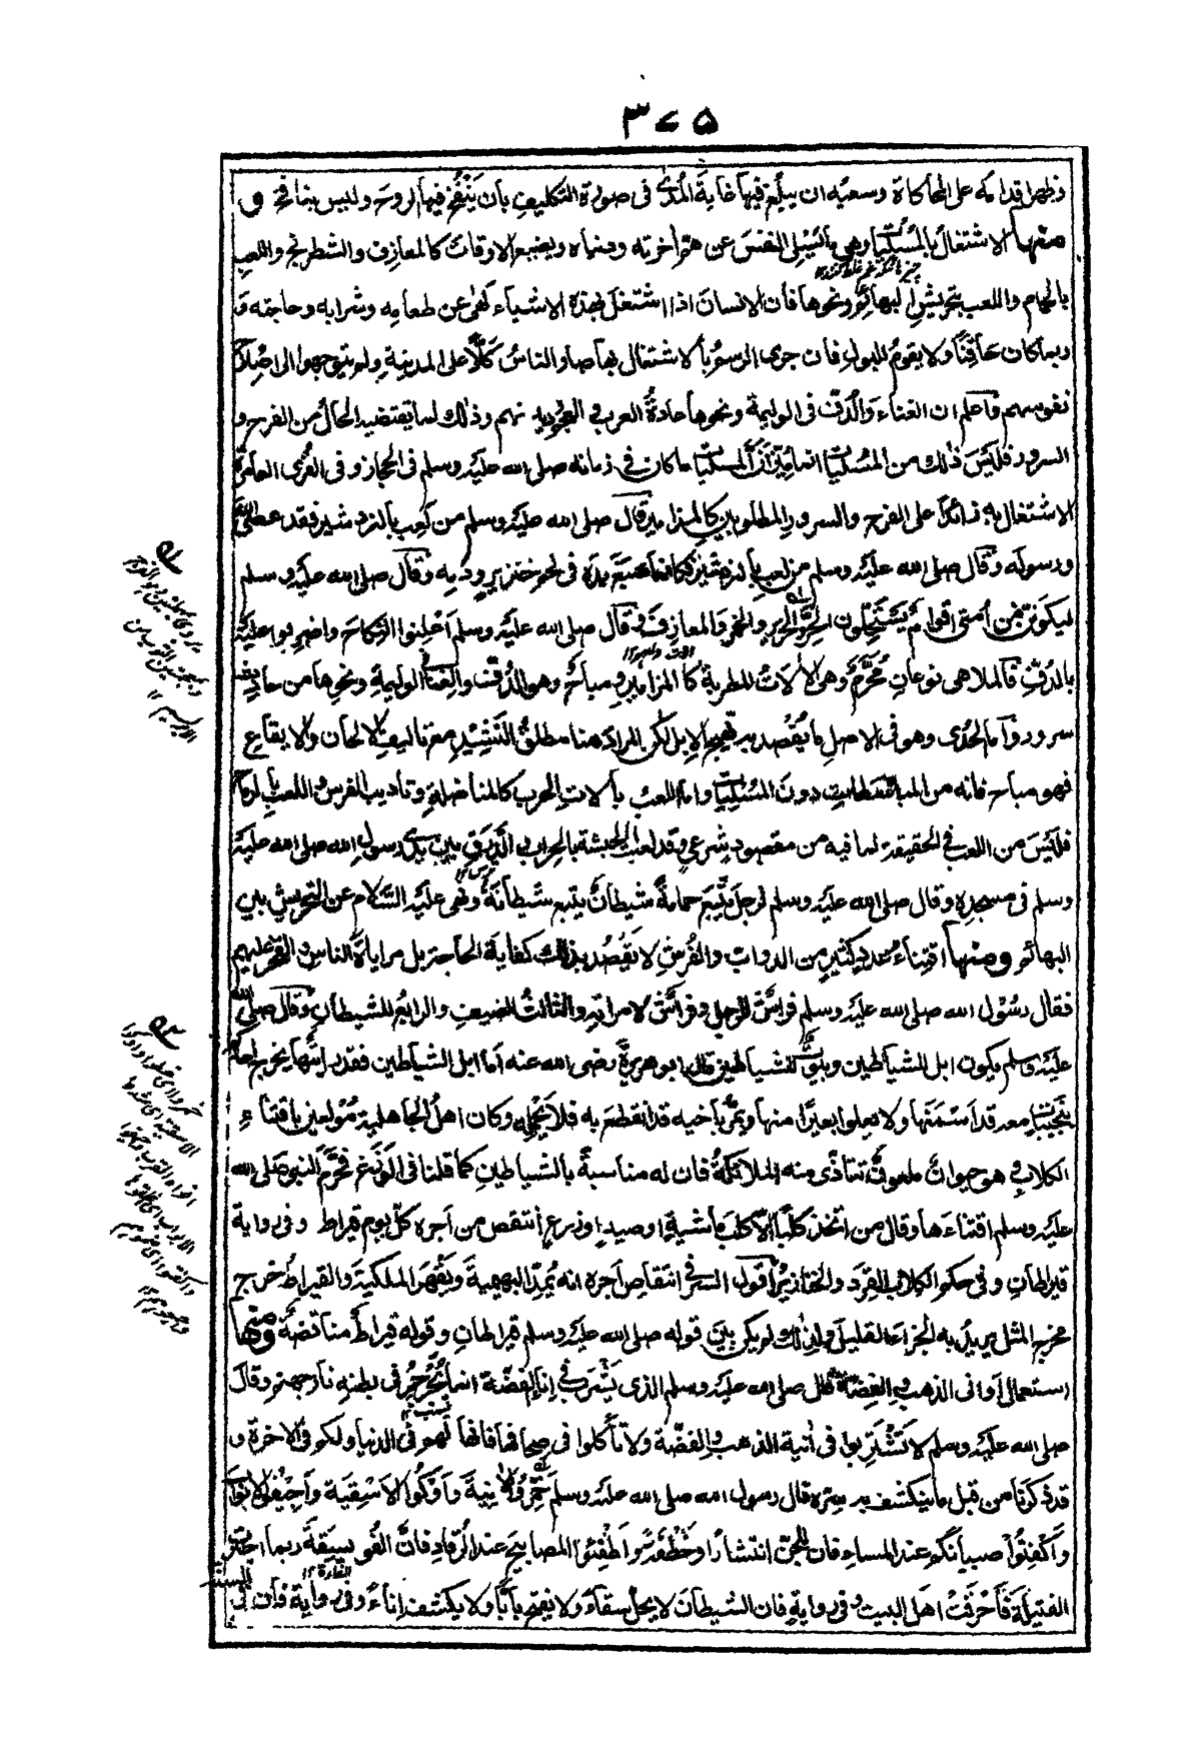 ٣٧٥
وظهر اقدامه على المحاكاة وسعيه ان يبلغ فيها غاية المدى فى صورة التكليف بأن يَنْفُخ فيها الروح وليس بنافخ و
منها الاشتغال بالمسليات وهى ما يُسلى النفسَ عن هَمّ اٰخرته ودنياه ويضيع الاوقات كالمعازف والشطرنج واللعب
بالحمام واللعب بتحريش البهائم ونحوها فان الانسان اذا اشتغل بهذه الاشياء لهى عن طعامه وشرابه وحاجته و
ربما كان حاقنًا ولا يقوم للبول فان جرى الرسم بالاشتغال بها صار الناس كَلًّا على المدينة ولم يتوجهوا الى اصلاح
نفوسهم واعلم ان الغناء والدُّفّ فى الوليمة ونحوها عادةُ العرب والعجم وديدنهم وذلك لما يقتضيه الحال من الفرح و
السرور فليس ذلك من المسليات انما ميزان المسليات ما كان فى زمانه صلى الله عليه وسلم فى الحجاز وفى القرى العامرة
الاشتغال به زائدًا على الفرح والسرور المطلوبين كالمزامير قال صلى الله عليه وسلم من لعب بالنردشير فقد عصى الله
ورسوله وقال صلى الله عليه وسلم من لعب بالنردشير فكانما صبغ يده فى لحم خنزير ودمه وقال صلى الله عليه وسلم
ليكونن من أمتى اقوام يَسْتَحِلّون الحِرَ والحرير والخمر والمعازف وقال صلى الله عليه وسلم أَعْلِنوا النكاح واضربوا عليه
بالدُفِّ فالملاهى نوعان مُحَرَّم وهى الألات المطربة كالمزامير ومباح وهو الدُفّ والغناء فى الوليمة ونحوها من حادث
سرور واما الحُدَى وهو فى الاصل ما يُقْصَد به تهييج الابل لكن المراد هنا مطلق النَشِيْد مع تاليف الالحان والايقاع
فهو مباح فانه من المباسطات دون المسليات واما اللعب بألات الحرب كالمناضلة وتاديب الفرس واللعب بالرماح
فليس من اللعب فى الحقيقة لما فيه من مقصود شرعى وقد لعبت الحبشة بالحراب والدَرَق بين يدى رسول الله صلى الله عليه
وسلم فى مسجده وقال صلى الله عليه وسلم لرجل يتبع حمامةً شيطانٌ يتبع شيطانةً ونهى عليه السلام عن التحريش بين
البهائم ومنها اقتناء عدد كثير من الدواب والفُرُش لا يُقْصَد بذلك كفاية الحاجة بل مراياة الناس والفخر عليهم
فقال رسول الله صلى الله عليه وسلم فراش للرجل وفراش لامراته والثالث للضيف والرابع للشيطان وقال صلى الله
عليه وسلم يكون ابل للشياطين وبيوت للشياطين قال ابو هريرة رضى الله عنه اما ابل الشياطين فقد رايتها يخرج احدكم
بنجيبات معه قد اَسْمَنَها ولا يعلوا بعيرًا منها ويمرّ بأخيه قد انقطع به فلا يَحْمِلُه وكان اهل الجاهلية مُوْلَعين باقتناء
الكلاب وهو حيوان ملعون تتاذى منه الملائكة فان له مناسبةً بالشياطين كما قلنا فى الوَزَغ فحَرَّم النبى صلى الله
عليه وسلم اقتناءها وقال من اتخذ كلبًا الّا كلبَ ماشيةٍ او صيدٍ او زرع اُنتقص من اجره كلَّ يوم قيراط وفى رواية
قيراطان وفى حكم الكلاب القِرَدَة والخنازير أقول السر فى انتقاص اجره انه يُمِدّ البهيمية ويَقْهَر الملكية والقيراط خرج
مخرج المثل يريد به الجزاء القليل ولذلك لم يكن بين قوله صلى الله عليه وسلم قيراطان وقوله قيراط مناقضة ومنها
استعمال اوانى الذهب والفضة قال صلى الله عليه وسلم الذى يَشْرَبُ فى إناء الفضة انما يُجَرْجِرُ فى بطنه نارَ جهنم وقال
صلى الله عليه وسلم لا تَشْرَبوا فى أنية الذهب والفضة ولا تأكلوا فى صحافها فانها لهم فى الدنيا ولكم فى الاخرة و
قد ذكرنا من قبل ما ينكشف به سره قال رسول الله صلى الله عليه وسلم خَمِّرُوا الانية وأَوْكُوا الاَسْقِيَة وأَجِيْفُوا الابواب
وأكْفِتُوْا صبيانَكم عند المساء فان للجن انتشارًا وخَطْفَةً وأَطْفِئوا المصابيح عند الرُقاد فانّ الفُوَيسِقَةَ ربما اجتَرَّت
الفتيلةَ فأَحْرَقَتْ اهلَ البيت وفى رواية فان الشيطان لا يحل سقاءً ولا يفتح بابًا ولا يكشف اناءً وفى رواية فان فى
السنة